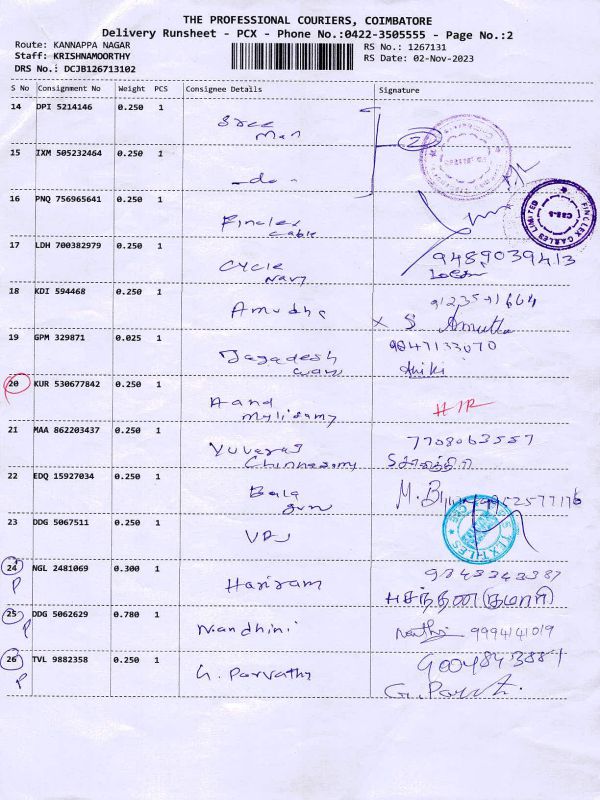 THE PROFESSIONAL COURIERS, COIMBATORE
Delivery Runsheet - PCX - Phone No.:0422-3505555 - Page No.:2
Route: KANNAPPA NAGAR
RS No.: 1267131
Staff: KRISHNAMOORTHY
RS Date: 02-Nov-2023
DRS No.: DCJB126713102
S No Consignment No Weight PCS Consignee Details Signature
14 DPI 5214146 0.250 1
Sree
Man
2
15 IXM 505232464 0.250 1
-do-
16 PNQ 756965641 0.250 1
Finclex
Cable
FINCLEX CABLES LIMITED
17 LDH 700382979 0.250 1
Cycle
Navy
9489039413
18 KDI 594468 0.250 1
Amudha
x S Amutha
19 GPM 329871 0.025 1
Jagadesh
9847133070
20 KUR 530677842 0.250 1
Aand
Mylisamy
21 MAA 862203437 0.250 1
Yuveraj
Chinnasamy
7708063557
22 EDQ 15927034 0.250 1
Bala
M.
23 DDG 5067511 0.250 1
VPJ
TEXTILES
24 NGL 2481069 0.300 1
P
Hariram
9843343387
25 DDG 5062629 0.780 1
P
Nandhini
9994141019
26 TVL 9882358 0.250 1
P
G. Parvathy